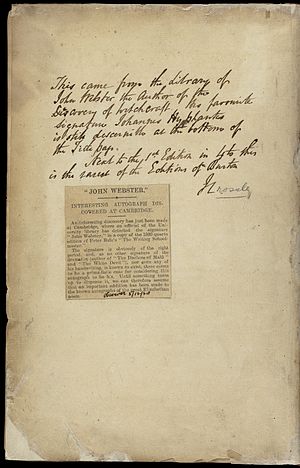 This came from the library of
John Webster the Author of the
Discovery of Witchcraft. His favourite
Signature Johannes Hyphastes
is still discernible at the bottom of
the Title page.
Next to the 1st Edition in 4to this
is the rarest of the Editions of Burton
J Crossley
"JOHN WEBSTER."
INTERESTING AUTOGRAPH DIS-
COVERED AT CAMBRIDGE.
An interesting discovery has just been made
at Cambridge, where an official of the Uni-
versity library has detected the signature
"John Webster," in a copy of the 1590 quarto
edition of Peter Bales's "The Writing School-
master."
The signature is obviously of the right
period, and, as no other signature of the
dramatist (author of "The Duchess of Malfi"
and "The White Devil"), nor even any of
his handwriting, is known to exist, there seems
to be a prima-facie case for considering this
autograph to be his. Until something turns
up to disprove it, we can therefore assume
that an important addition has been made to
the known autographs of the great Elizabethan
poets.